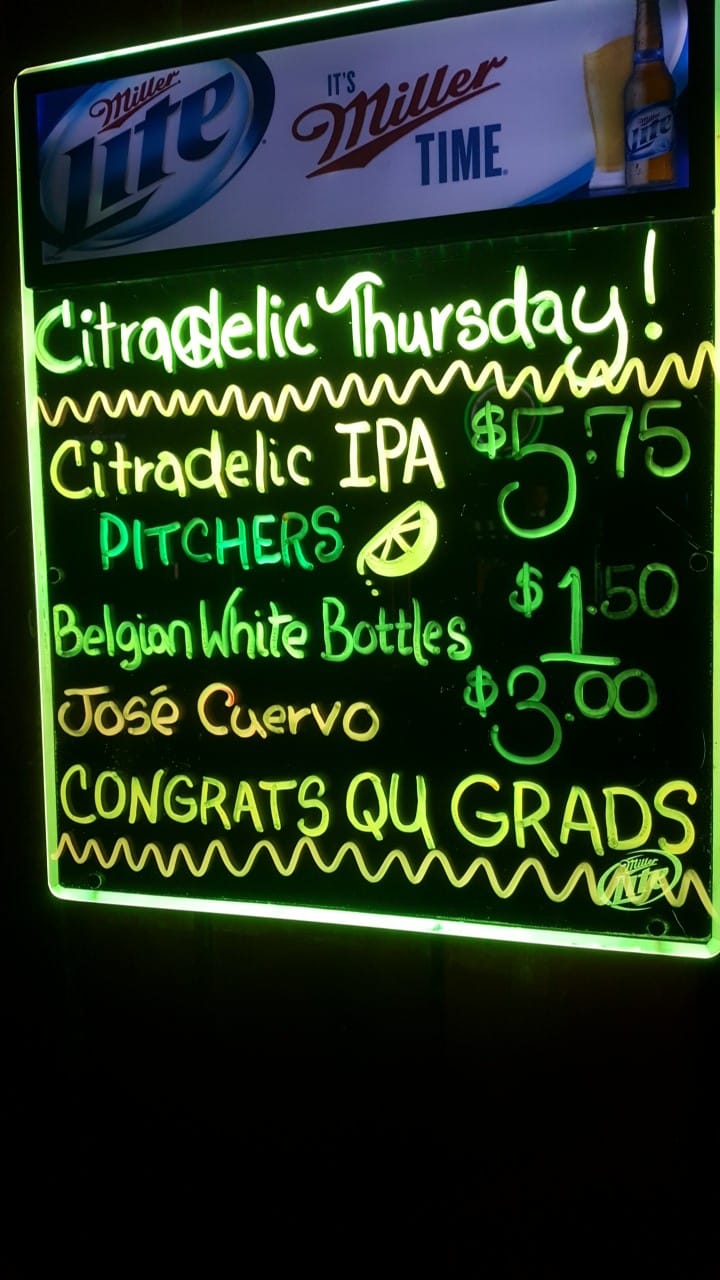 Miller Lite
IT'S
Miller
TIME
Lite
Citradelic Thursday!
Citradelic IPA $5.75
PITCHERS
Belgian White Bottles $1.50
José Cuervo $3.00
CONGRATS QU GRADS
Miller
Lite